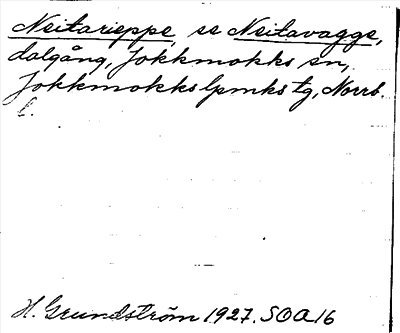 Neitarieppe, se Neitavagge,
dalgång, Jokkmokks sn,
Jokkmokks lpmks tg, Norrb.
l.
H. Grundström 1927. SOA 16